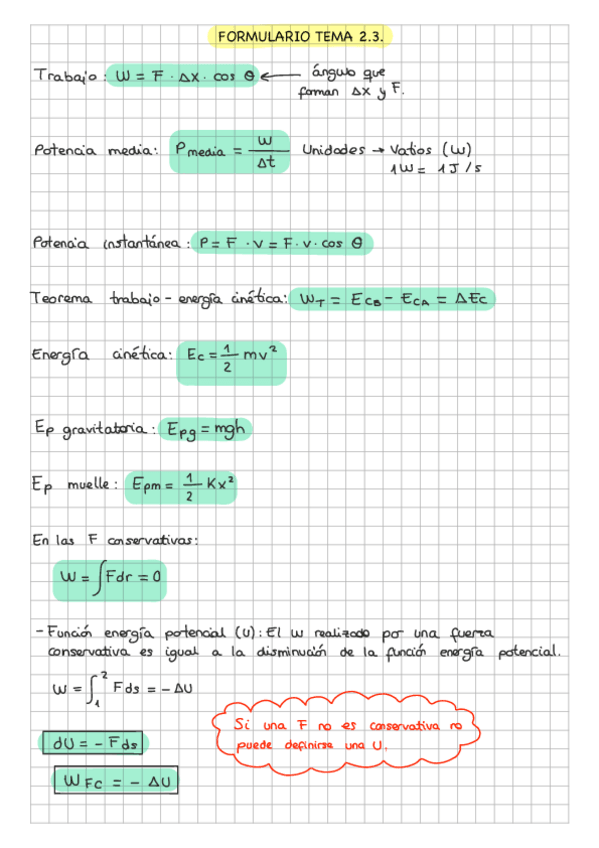 FORMULARIO TEMA 2.3.
Trabajo: W = F · Δx · cos θ ← ángulo que
forman Δx y F.
Potencia media: Pmedia = W/Δt Unidades → Vatios (W)
1W = 1J/s
Potencia instantánea: P = F · v = F · v · cos θ
Teorema trabajo - energía cinética: WT = ECB - ECA = ΔEc
Energía cinética: Ec = 1/2 mv²
Ep gravitatoria: Epg = mgh
Ep muelle: Epm = 1/2 Kx²
En las F conservativas:
W = ∫Fdr = 0
- Función energía potencial (U): El W realizado por una fuerza
conservativa es igual a la disminución de la función energía potencial.
W = ∫₁² Fds = - ΔU
Si una F no es conservativa no
puede definirse una U.
dU = - Fds
WFC = - ΔU